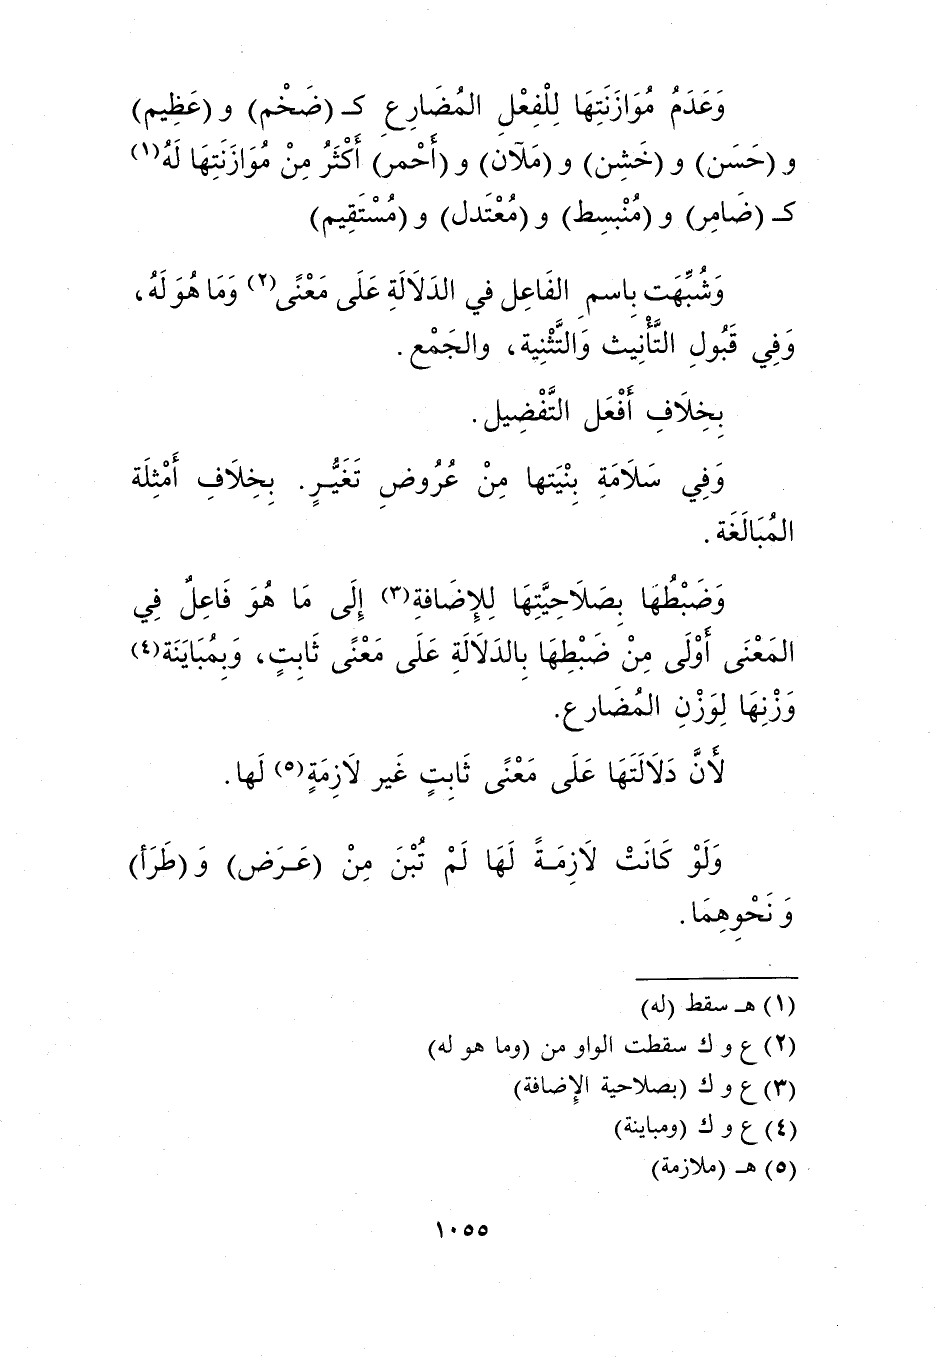 وَعَدَمُ مُوَازَنَتِهَا لِلْفِعْلِ المُضَارِعِ كـ (ضَخْم) و (عَظِيم)
و (حَسَن) و (خَشِن) و (مَلآن) و (أَحْمر) أَكْثَرُ مِنْ مُوَازَنَتِهَا لَهُ(١)
كـ (ضَامِر) و (مُنْبسِط) و (مُعْتَدل) و (مُسْتَقِيم)
وَشُبِّهَت بِاسمِ الفَاعِل في الدَلَالَةِ عَلَى مَعْنًى(٢) وَمَا هُوَ لَهُ،
وَفِي قَبُولِ التَّأْنِيث وَالتَّثْنِية، والجَمْع.
بِخِلَافِ أَفْعَل التَّفْضِيل.
وَفِي سَلَامَةِ بِنْيَتها مِنْ عُرُوضِ تَغَيُّـرٍ. بِخِلَافِ أَمْثِلَة
المُبَالَغَة.
وَضَبْطُهَا بِصَلَاحِيَّتِهَا لِلإِضَافةِ(٣) إِلَى مَا هُوَ فَاعِلٌ فِي
المَعْنَى أَوْلَى مِنْ ضَبْطِهَا بِالدَلَالَةِ عَلَى مَعْنًى ثَابِتٍ، وَبِمُبَايَنَة(٤)
وَزْنِهَا لِوَزْنِ المُضَارع.
لأَنَّ دَلَالَتَهَا عَلَى مَعْنًى ثَابِتٍ غَير لَازِمَةٍ(٥) لَها.
وَلَوْ كَانَتْ لَازِمَـةً لَهَا لَمْ تُبْنَ مِنْ (عَـرَض) وَ (طَرَأ)
وَنَحْوِهِمَا.
(١) هـ سقط (له)
(٢) ع و ك سقطت الواو من (وما هو له)
(٣) ع و ك (بصلاحية الإِضافة)
(٤) ع و ك (ومباينة)
(٥) هـ (ملازمة)
١٠٥٥